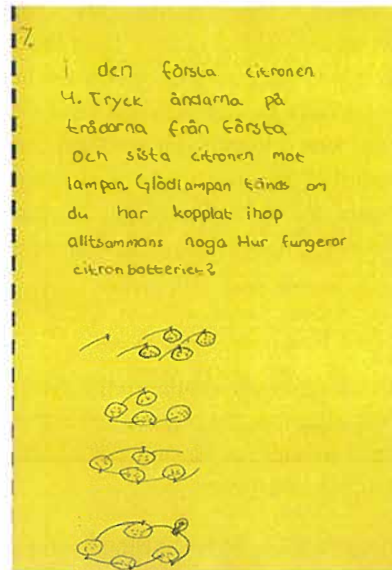 7.
i den första citronen
4. Tryck ändarna på
trådarna från första
Och sista citronen mot
lampan. Glödlampan tänds om
du har kopplat ihop
alltsammans noga Hur fungerar
citronbatteriet?